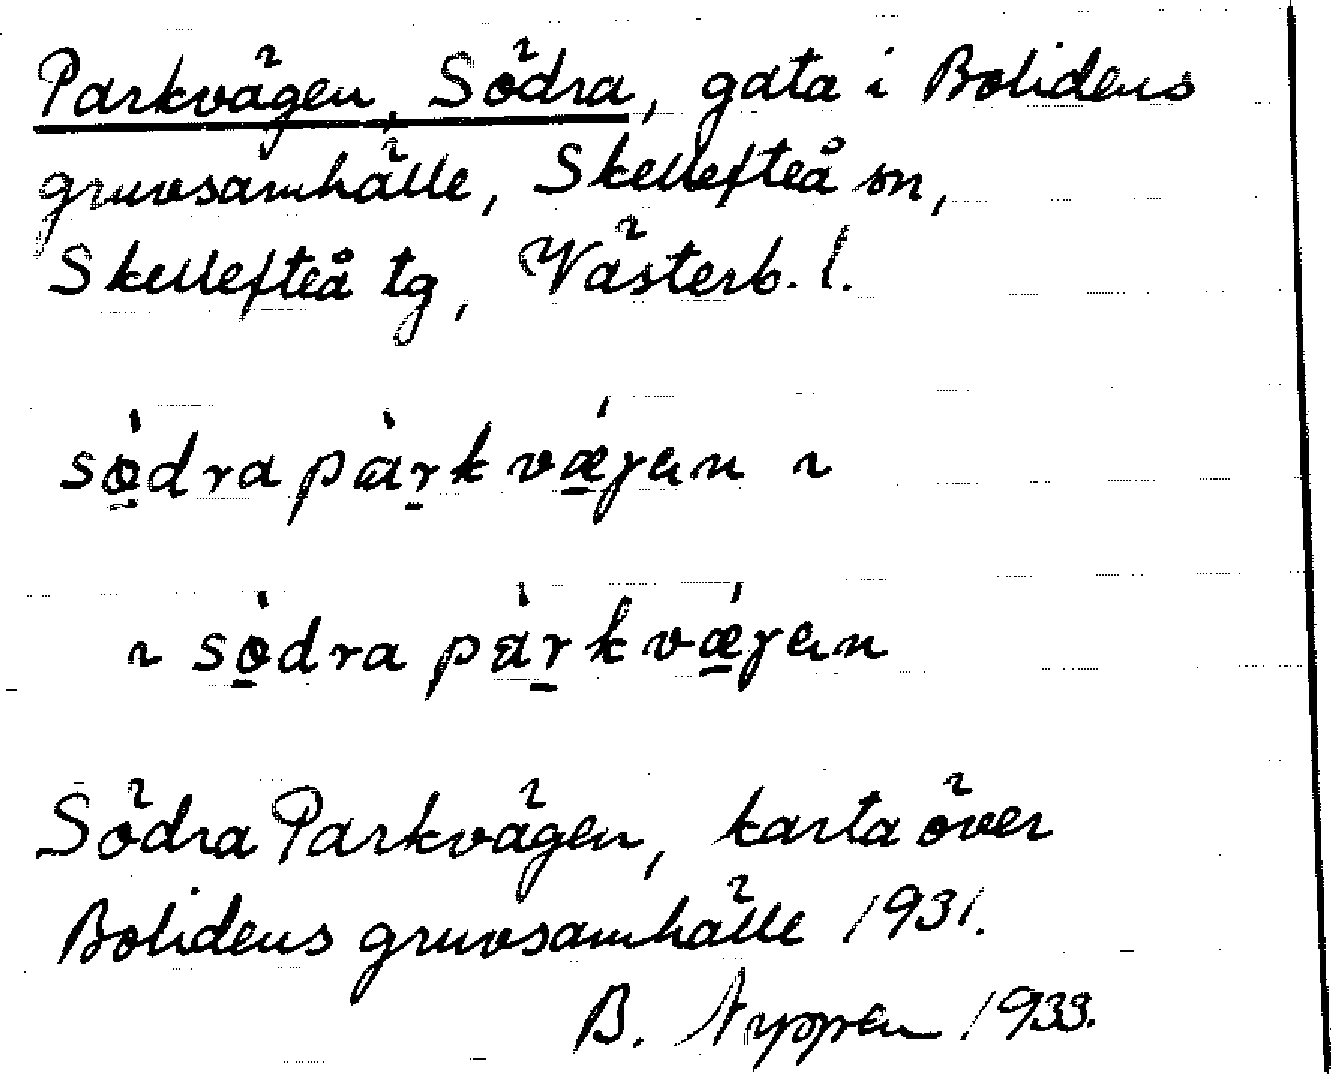 Parkvägen, Södra, gata i Bolidens
gruvsamhälle, Skellefteå sn,
Skellefteå tg, Västerb. l.
sö̀drapàrkvǽgen ~
~ sö̀drapàrkvǽgen
Södra Parkvägen, karta över
Bolidens gruvsamhälle 1931.
B. Nyppen 1933.